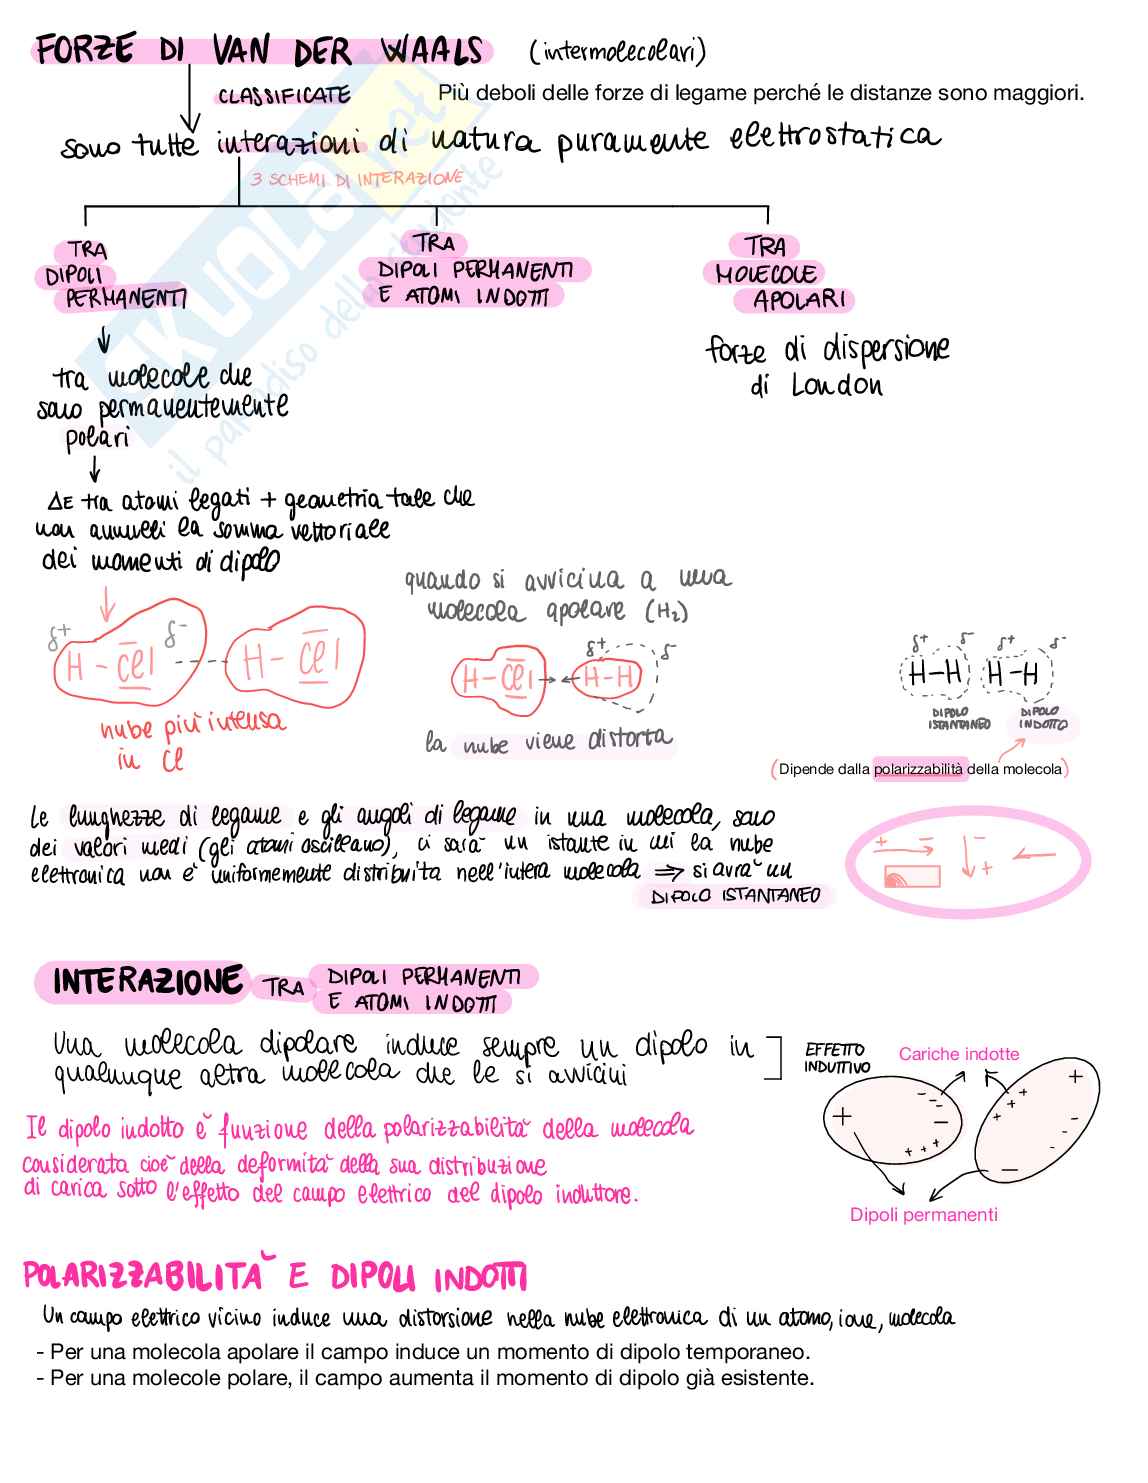 FORZE DI VAN DER WAALS (intermolecolari)
CLASSIFICATE
Più deboli delle forze di legame perché le distanze sono maggiori.
sono tutte interazioni di natura puramente elettrostatica
3 SCHEMI DI INTERAZIONE
TRA
DIPOLI
PERMANENTI
TRA
DIPOLI PERMANENTI
E ATOMI INDOTTI
TRA
MOLECOLE
APOLARI
forze di dispersione
di London
tra molecole che
sono permanentemente
polari
ΔE tra atomi legati + geometria tale che
non annulli la somma vettoriale
dei momenti di dipolo
δ+ δ-
H - Cl H - Cl
nube più intensa
in Cl
quando si avvicina a una
molecola apolare (H2)
δ+ δ-
H - Cl H - H
la nube viene distorta
δ+ δ- δ+ δ-
H-H H-H
DIPOLO
ISTANTANEO
DIPOLO
INDOTTO
(Dipende dalla polarizzabilità della molecola)
Le lunghezze di legame e gli angoli di legame in una molecola, sono
dei valori medi (gli atomi oscillano), ci sarà un istante in cui la nube
elettronica non è uniformemente distribuita nell'intera molecola ⇒ si avrà un
DIPOLO ISTANTANEO
+ - - +
INTERAZIONE TRA DIPOLI PERMANENTI
E ATOMI INDOTTI
Una molecola dipolare induce sempre un dipolo in
qualunque altra molecola che le si avvicini
EFFETTO
INDUTTIVO
Cariche indotte
+ - - - - + + +
+ + + + - - - -
Dipoli permanenti
Il dipolo indotto è funzione della polarizzabilità della molecola
considerata cioè della deformità della sua distribuzione
di carica sotto l'effetto del campo elettrico del dipolo induttore.
POLARIZZABILITÀ E DIPOLI INDOTTI
Un campo elettrico vicino induce una distorsione nella nube elettronica di un atomo, ione, molecola
- Per una molecola apolare il campo induce un momento di dipolo temporaneo.
- Per una molecole polare, il campo aumenta il momento di dipolo già esistente.
SKUOLA.net
il paradiso dello studente